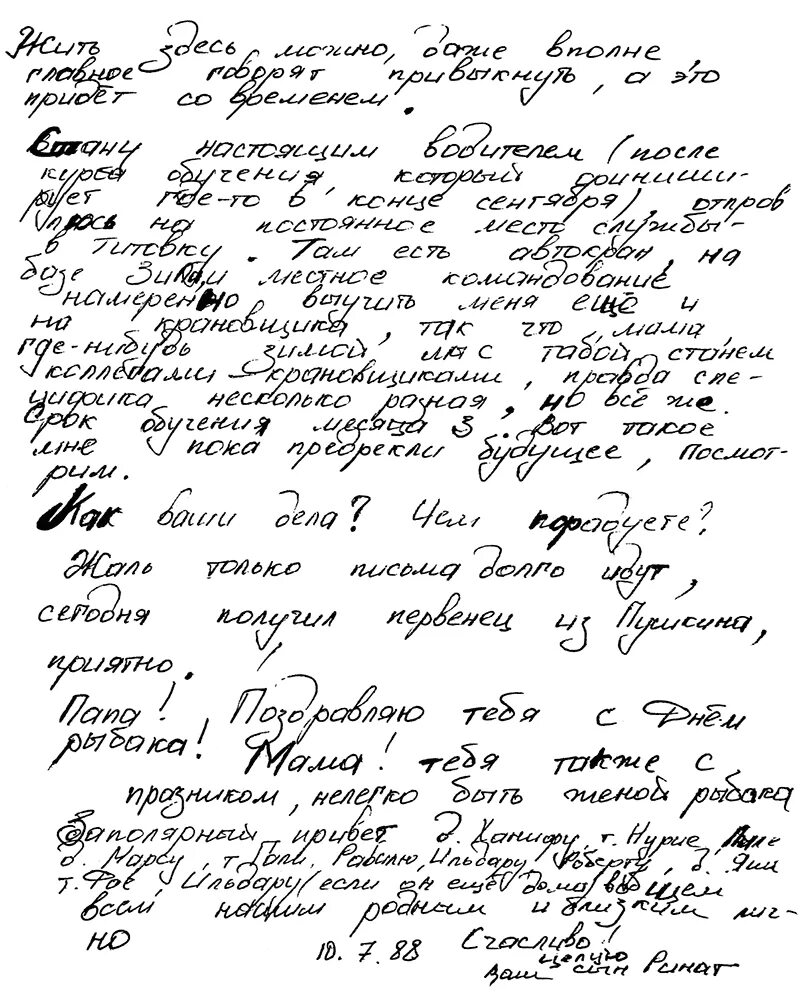 Жить здесь можно, даже вполне,
главное говорят привыкнуть, а это
придёт со временем.
Стану настоящим водителем (после
курса обучения, который финиши-
рует где-то в конце сентября), отправ
люсь на постоянное место службы-
в Титовку. Там есть автокран, на
базе ЗиЛ, и местное командование
намеренно выучить меня ещё и
на крановщика, так что, мама,
где-нибудь зимой мы с табой станем
коллегами - крановщиками, правда спе-
цифика несколько разная, но всё же.
Срок обучения месяца 3. Вот такое
мне пока предрекли будущее, посмот-
рим.
Как ваши дела? Чем порадуете?
Жаль только письма долго идут,
сегодня получил первенец из Пушкина,
приятно!
Папа! Поздравляю тебя с Днём
рыбака! Мама! тебя также с
празником, нелегко быть женой рыбака
Заполярный привет д. Ханифу, т. Нурие,
д. Марсу, т. Гали, Равилю, Ильдару, Роберту, д. Яши
т. Фае, Ильдару (если он ещё дома) вобщем
всем нашим родным и близким лич-
но
10. 7. 88 Счасливо!
целую
ваш сын Ринат